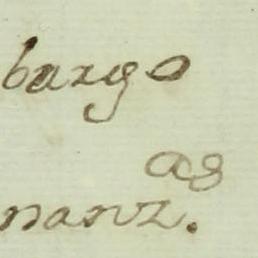 bargo
as
nanz.